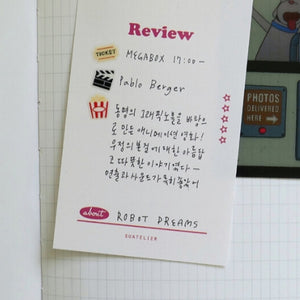 Review
TICKET
MEGABOX 17:00 -
Pablo Berger
동명의 그래픽노블을 바탕으
로 만든 애니메이션 영화!
우정의 본질에 대한 아름답
고 따뜻한 이야기였다 -
연출과 사운드가 특히 좋았어
about
ROBOT DREAMS
SOATELIER
PHOTOS
DELIVERED
HERE →